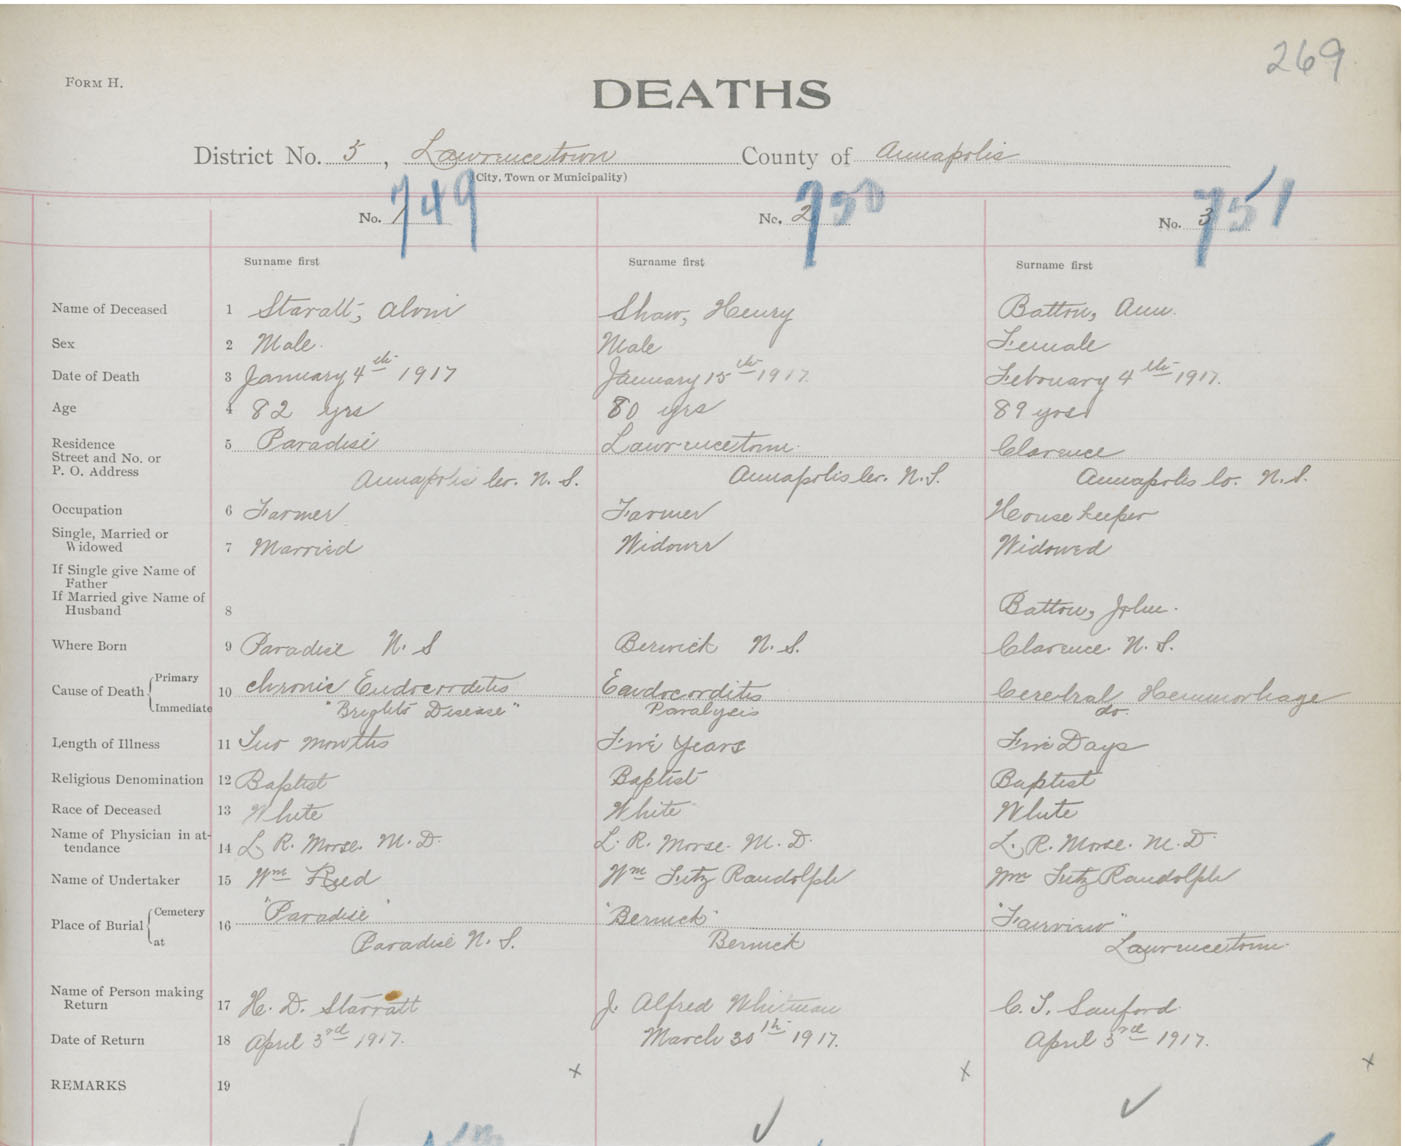 269
Form H.
DEATHS
District No. 5, Lawrencetown County of Annapolis
(City, Town or Municipality)
749 750 751
No. 1 No. 2 No. 3
Surname first Surname first Surname first
Name of Deceased 1 Staratt, Alvin Shaw, Henry Batton, Ann.
Sex 2 Male. Male Female
Date of Death 3 January 4th 1917 January 15th 1917. February 4th 1917.
Age 4 82 yrs 80 yrs 89 yrs
Residence 5 Paradise Lawrencetown. Clarence
Street and No. or
P. O. Address Annapolis Co. N. S. Annapolis Co. N. S. Annapolis Co. N. S.
Occupation 6 Farmer Farmer House keeper
Single, Married or
Widowed 7 Married Widower Widowed
If Single give Name of
Father
If Married give Name of
Husband 8 Batton, John.
Where Born 9 Paradise N. S Berwick N. S. Clarence. N. S.
Cause of Death Primary 10 chronic Endocorditis Endocorditis Cerebral Hemmorhage
Immediate "Brights Disease" Paralysis do.
Length of Illness 11 Two months Five Years Five Days
Religious Denomination 12 Baptist Baptist Baptist
Race of Deceased 13 White White White
Name of Physician in at-
tendance 14 L. R. Morse. M. D. L. R. Morse. M. D. L. R. Morse. M. D.
Name of Undertaker 15 Wm Reed Wm Fitz Randolph Wm Fitz Randolph
Place of Burial Cemetery 16 "Paradise" "Berwick" "Fairview"
at Paradise N. S. Berwick Lawrencetown.
Name of Person making
Return 17 H. D. Starratt J. Alfred Whitman C. S. Sanford
Date of Return 18 April 3rd 1917. March 30th 1917. April 3rd 1917.
x x x
REMARKS 19